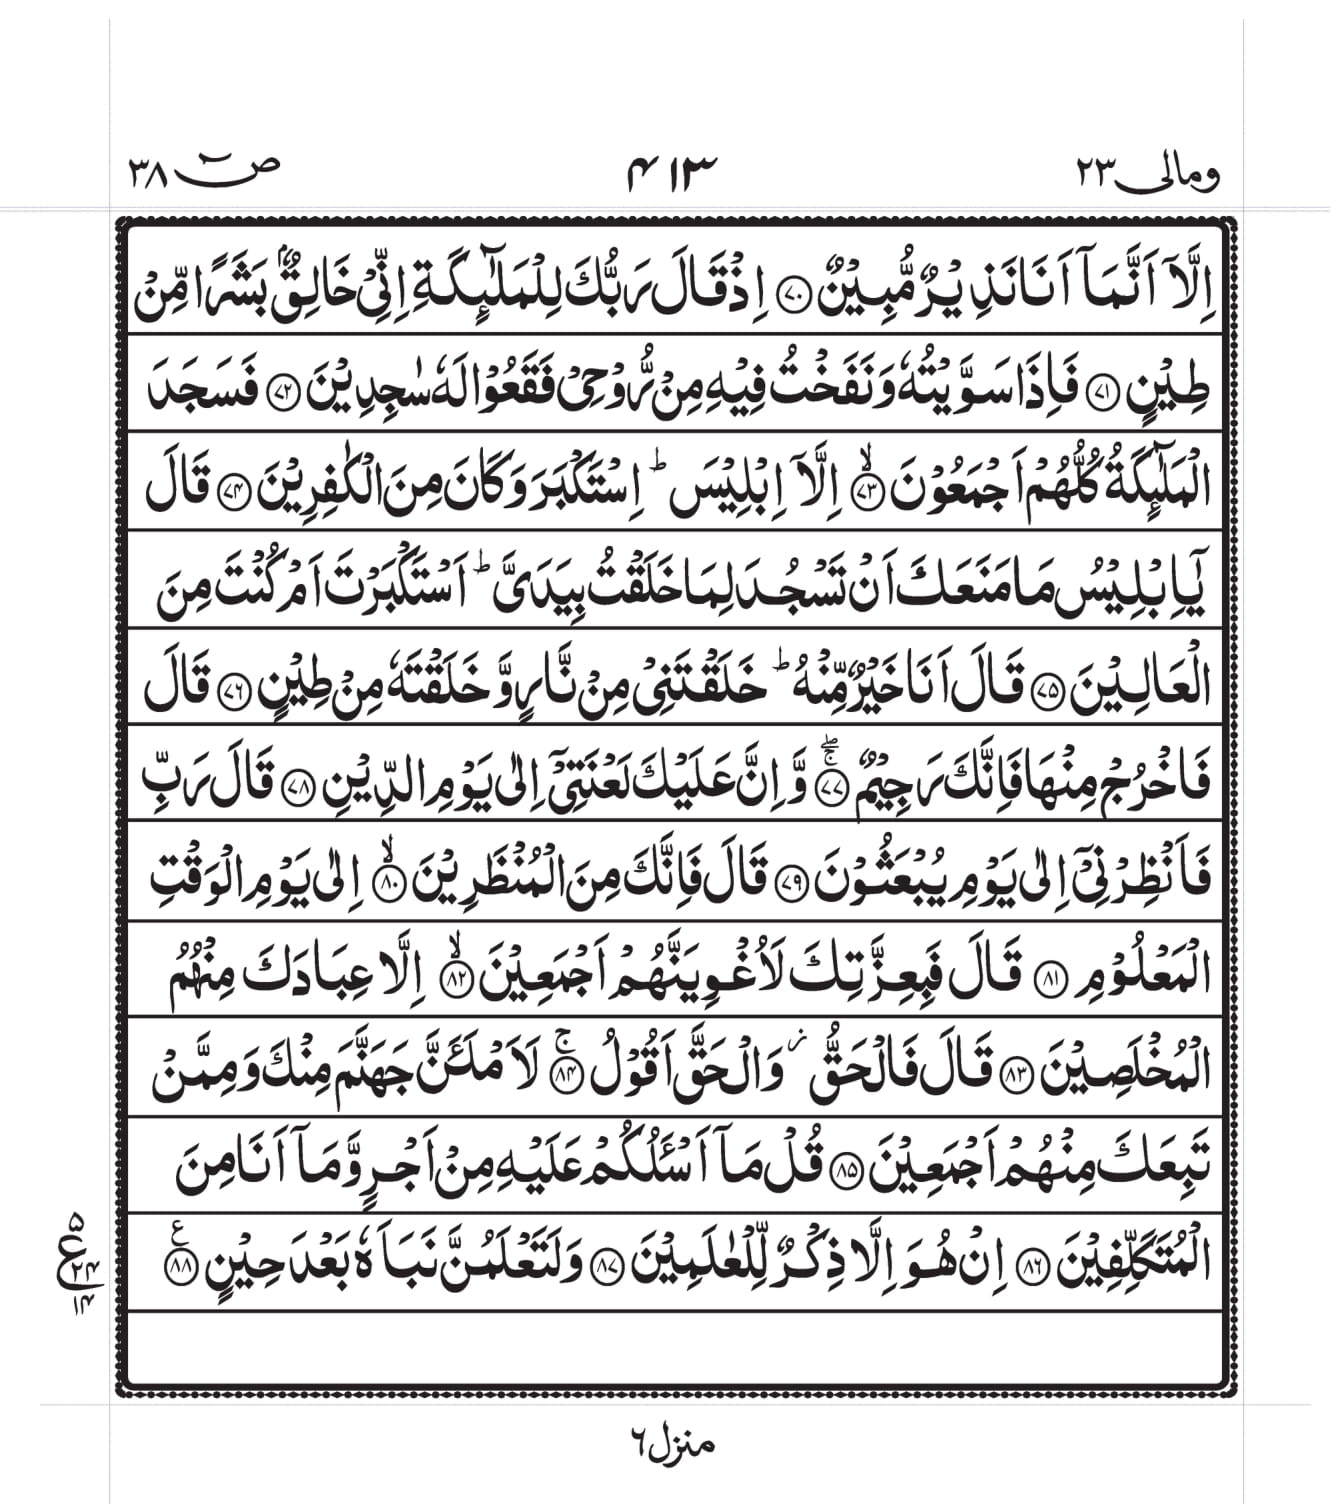 ومالی ۲۳
۴۱۳
صٓ ۳۸
اِلَّاۤ اَنَّمَاۤ اَنَا نَذِیْرٌ مُّبِیْنٌ ﴿۷۰﴾ اِذْ قَالَ رَبُّكَ لِلْمَلٰٓئِكَةِ اِنِّیْ خَالِقٌۢ بَشَرًا مِّنْ
طِیْنٍ ﴿۷۱﴾ فَاِذَا سَوَّیْتُهٗ وَنَفَخْتُ فِیْهِ مِنْ رُّوْحِیْ فَقَعُوْا لَهٗ سٰجِدِیْنَ ﴿۷۲﴾ فَسَجَدَ
الْمَلٰٓئِكَةُ كُلُّهُمْ اَجْمَعُوْنَ ﴿۷۳﴾ۙ اِلَّاۤ اِبْلِیْسَ ؕ اِسْتَكْبَرَ وَكَانَ مِنَ الْكٰفِرِیْنَ ﴿۷۴﴾ قَالَ
یٰۤاِبْلِیْسُ مَا مَنَعَكَ اَنْ تَسْجُدَ لِمَا خَلَقْتُ بِیَدَیَّ ؕ اَسْتَكْبَرْتَ اَمْ كُنْتَ مِنَ
الْعَالِیْنَ ﴿۷۵﴾ قَالَ اَنَا خَیْرٌ مِّنْهُ ؕ خَلَقْتَنِیْ مِنْ نَّارٍ وَّ خَلَقْتَهٗ مِنْ طِیْنٍ ﴿۷۶﴾ قَالَ
فَاخْرُجْ مِنْهَا فَاِنَّكَ رَجِیْمٌ ﴿۷۷﴾ۚۖ وَّ اِنَّ عَلَیْكَ لَعْنَتِیْۤ اِلٰی یَوْمِ الدِّیْنِ ﴿۷۸﴾ قَالَ رَبِّ
فَاَنْظِرْنِیْۤ اِلٰی یَوْمِ یُبْعَثُوْنَ ﴿۷۹﴾ قَالَ فَاِنَّكَ مِنَ الْمُنْظَرِیْنَ ﴿۸۰﴾ۙ اِلٰی یَوْمِ الْوَقْتِ
الْمَعْلُوْمِ ﴿۸۱﴾ قَالَ فَبِعِزَّتِكَ لَاُغْوِیَنَّهُمْ اَجْمَعِیْنَ ﴿۸۲﴾ۙ اِلَّا عِبَادَكَ مِنْهُمُ
الْمُخْلَصِیْنَ ﴿۸۳﴾ قَالَ فَالْحَقُّ ؗ وَالْحَقَّ اَقُوْلُ ﴿۸۴﴾ۚ لَاَمْلَئَنَّ جَهَنَّمَ مِنْكَ وَمِمَّنْ
تَبِعَكَ مِنْهُمْ اَجْمَعِیْنَ ﴿۸۵﴾ قُلْ مَاۤ اَسْئَلُكُمْ عَلَیْهِ مِنْ اَجْرٍ وَّمَاۤ اَنَا مِنَ
الْمُتَكَلِّفِیْنَ ﴿۸۶﴾ اِنْ هُوَ اِلَّا ذِكْرٌ لِّلْعٰلَمِیْنَ ﴿۸۷﴾ وَلَتَعْلَمُنَّ نَبَاَهٗ بَعْدَ حِیْنٍ ﴿۸۸﴾ع
۵
ع ۲۴
۱۴
منزل ۶